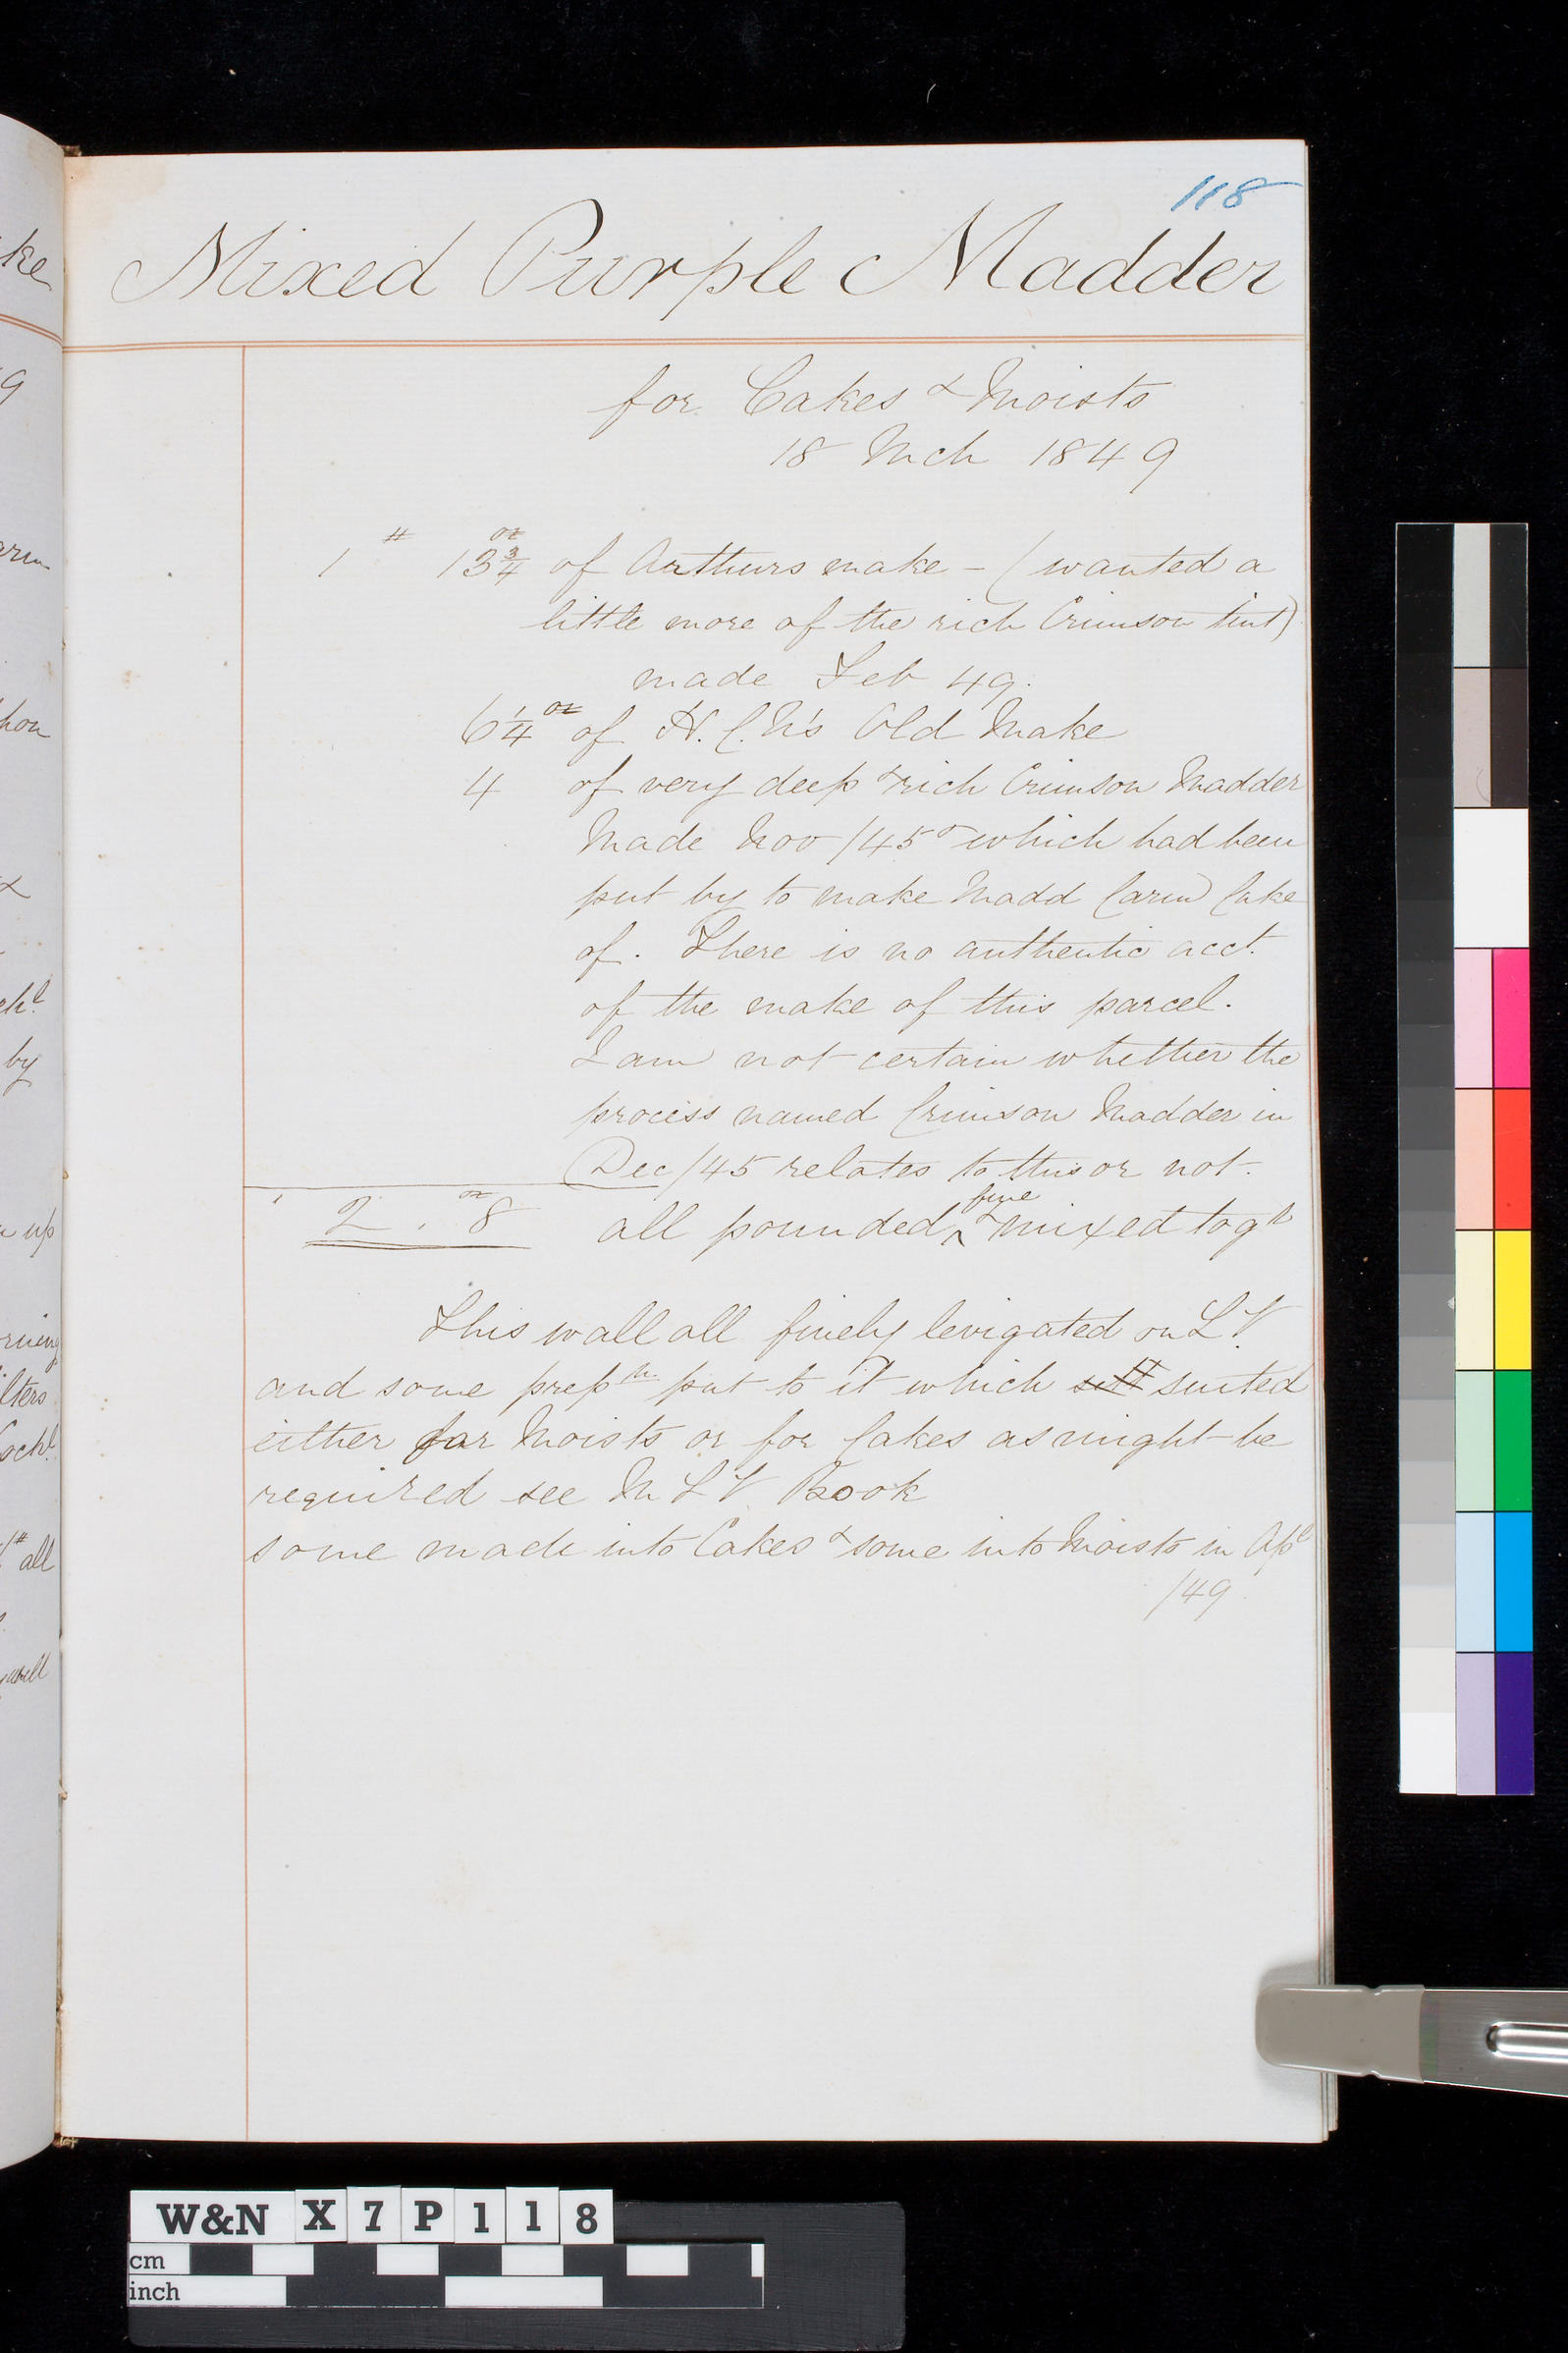 118
Mixed Purple Madder
for Cakes & Moists
18 Mch 1849
1 # 13 3/4 oz of Arthurs make - (wanted a
little more of the rich Crimson tint)
made Feb 49.
6 1/4 oz of H. C. N's Old Make
4 of very deep & rich Crimson Madder
Made Nov /45 & which had been
put by to make Madd Carm Cake
of. There is no authentic acct.
of the make of this parcel.
I am not certain whether the
process named Crimson Madder in
Dec /45 relates to this or not.
2 . 8 oz all pounded fine & mixed togr
This wall all finely levigated on L V
and some prepn put to it which suited
either for Moists or for Cakes as might be
required see M L V Book
some made into Cakes & some into Moists in Apl
/49
ke
9
arm
hon
&
chl
by
up
rning
lters
Cochl
# all
W&N X7P118
cm
inch